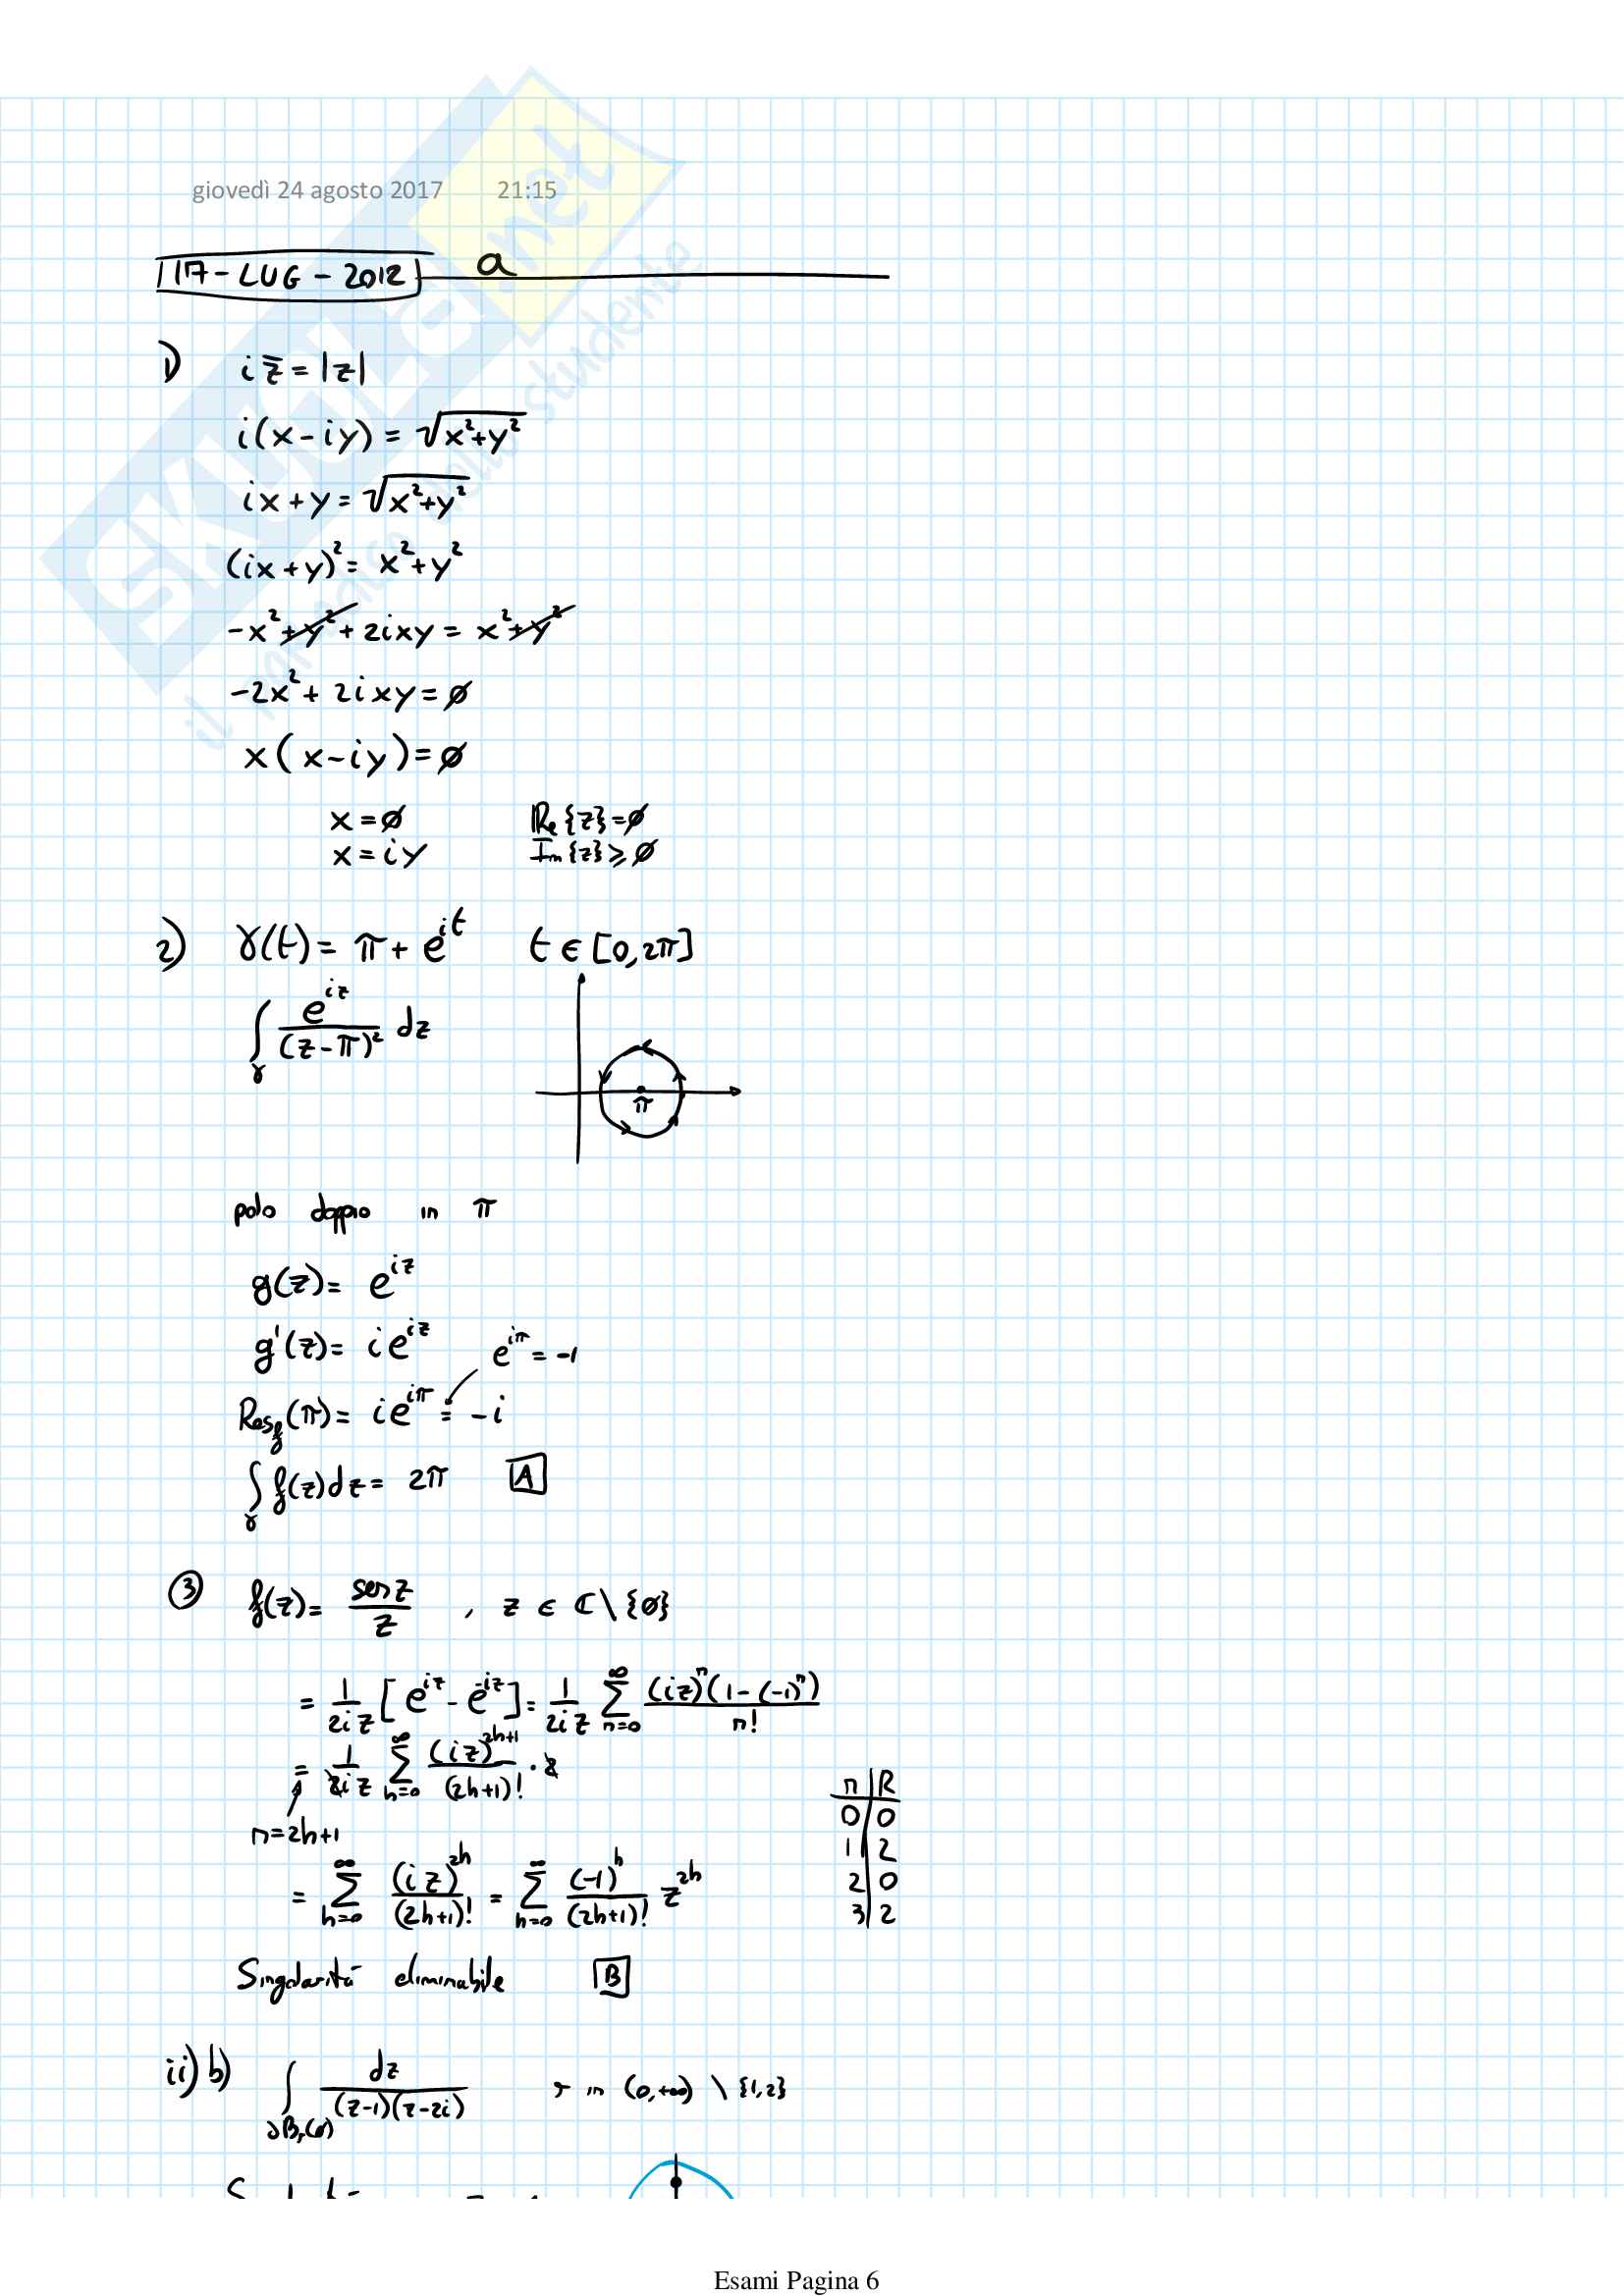 giovedì 24 agosto 2017 21:15
17-LUG-2012 a
1) i z̄ = |z|
i(x-iy) = √(x²+y²)
ix+y = √(x²+y²)
(ix+y)² = x²+y²
-x²+y²+2ixy = x²+y²
-2x²+2ixy = ∅
x(x-iy) = ∅
x=∅ Re{z}=∅
x=iy Im{z}≥∅
2) γ(t) = π + e^{it} t ∈ [0,2π]
∫_γ e^{iz}/(z-π)² dz
π
polo doppio in π
g(z) = e^{iz}
g'(z) = i e^{iz} e^{iπ} = -1
Res_f(π) = i e^{iπ} = -i
∫_γ f(z)dz = 2π A
3 f(z) = sen z/z , z ∈ ℂ\{∅}
= 1/(2iz) [e^{iz} - e^{-iz}] = 1/(2iz) ∑_{n=0}^{∞} (iz)^n(1-(-1)^n)/n!
= 1/(2iz) ∑_{h=0}^{∞} (iz)^{2h+1}/(2h+1)! · 2
n=2h+1
= ∑_{h=0}^{∞} (iz)^{2h}/(2h+1)! = ∑_{h=0}^{∞} (-1)^h/(2h+1)! z^{2h}
n R
0 0
1 2
2 0
3 2
Singolarità eliminabile B
ii) b) ∫_{∂B_r(0)} dz/((z-1)(z-2i)) r in (0,+∞) \ {1,2}
Esami Pagina 6
SKUOLA.net